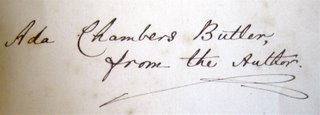 Ada Chambers Butler,
from the Author.